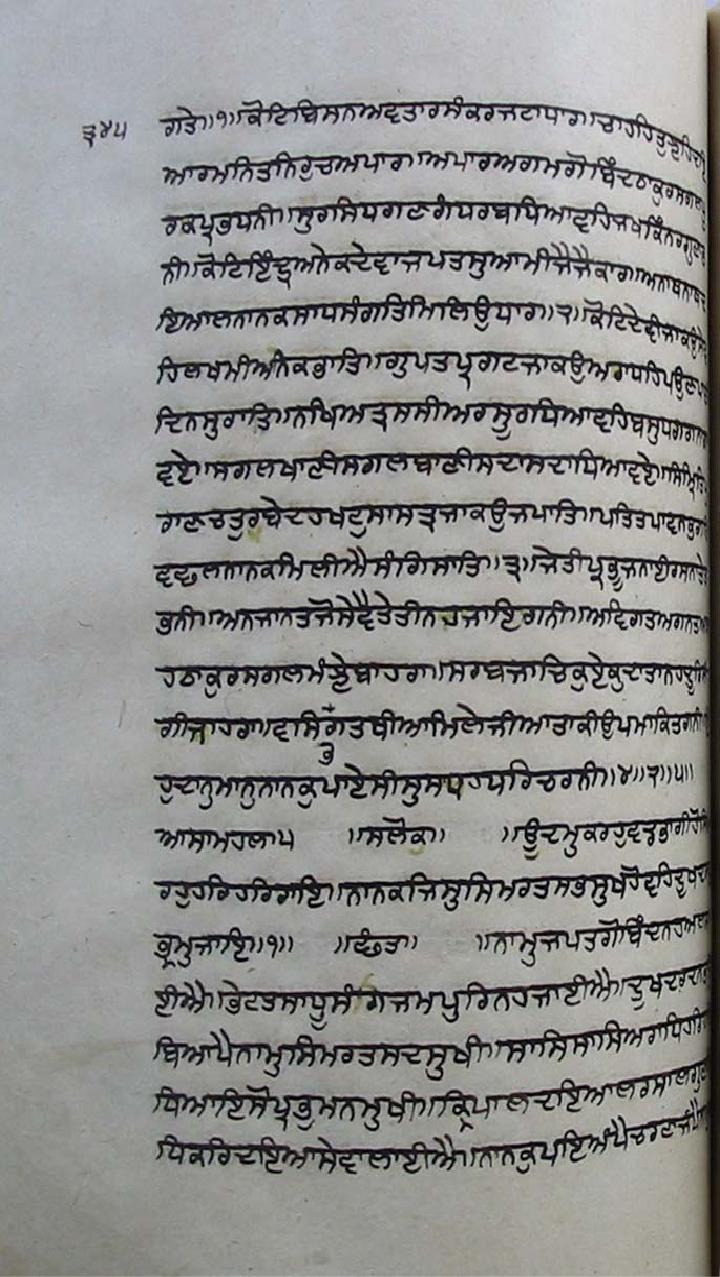 ੩੪੫
ਗਤੇ॥੧॥ਕੋਟਿਬਿਸਨਅਵਤਾਰਸੰਕਰਜਟਾਧਾਰ॥ਚਾਹਹਿਤੁਝਹਿ
ਆਰਮਨਿਤਨਿਰੁਚਅਪਾਰ॥ਅਪਾਰਅਗਮਗੋਬਿੰਦਠਾਕੁਰਸਗਲ
ਰਕਪ੍ਰਭਧਨੀ॥ਸੁਰਸਿਧਗਣਗੰਧਰਬਧਿਆਵਹਿਜਖਕਿੰਨਰਗੁਣ
ਨੀ॥ਕੋਟਿਇੰਦ੍ਰਅਨੇਕਦੇਵਾਜਪਤਸੁਆਮੀਜੈਜੈਕਾਰ॥ਅਨਾਥਨਾਥਦ
ਇਆਲਨਾਨਕਸਾਧਸੰਗਤਿਮਿਲਿਉਧਾਰ॥੨॥ਕੋਟਿਦੇਵੀਜਾਕਉਸੇਵ
ਹਿਲਖਮੀਅਨੇਕਭਾਤਿ॥ਗੁਪਤਪ੍ਰਗਟਜਾਕਉਅਰਾਧਹਿਪਉਣਪਾ
ਦਿਨਸੁਰਾਤਿ॥ਨਖਿਅਤ੍ਰਸਸੀਅਰਸੂਰਧਿਆਵਹਿਬਸੁਧਗਗਨਾ
ਵਏ॥ਸਗਲਖਾਣੀਸਗਲਬਾਣੀਸਦਾਸਦਾਧਿਆਵਏ॥ਸਿਮ੍ਰਿਤਿ
ਰਾਣਚਤੁਰਬੇਦਹਖਟੁਸਾਸਤ੍ਰਜਾਕਉਜਪਾਤਿ॥ਪਤਿਤਪਾਵਨਭਗਤਿ
ਵਛਲਨਾਨਕਮਿਲੀਐਸੰਗਿਸਾਤਿ॥੩॥ਜੇਤੀਪ੍ਰਭੂਜਨਾਈਰਸਨਾਤੇਤ
ਭਨੀ॥ਅਨਜਾਨਤਜੋਸੇਵੈਤੇਤੀਨਹਜਾਇਗਨੀ॥ਅਵਿਗਤਅਗਨਤਅਥਾ
ਹਠਾਕੁਰਸਗਲਮੰਝੇਬਾਹਰਾ॥ਸਰਬਜਾਚਿਕੁਏਕੁਦਾਤਾਨਹਦੂਰਿਸੰ
ਗੀਜਾਹਰਾ॥ਵਸਿਭਗਤਥੀਆਮਿਲੇਜੀਆਤਾਕੀਉਪਮਾਕਿਤਗਨੀ॥
ਹੁਦਾਨੁਮਾਨੁਨਾਨਕੁਪਾਏਸੀਸੁਸਾਧਹਧਰਿਚਰਨੀ॥੪॥੨॥੫॥
ਆਸਾਮਹਲਾ੫ ॥ਸਲੋਕ॥ ॥ਉਦਮੁਕਰਹੁਵਡਭਾਗੀਹੋਸਿਮ
ਰਹੁਹਰਿਹਰਿਰਾਇ॥ਨਾਨਕਜਿਸੁਸਿਮਰਤਸਭਸੁਖਹੋਵਹਿਦੂਖਦਰ
ਭ੍ਰਮੁਜਾਇ॥੧॥ ॥ਛੰਤ॥ ॥ਨਾਮੁਜਪਤਗੋਬਿੰਦਨਹਅਲਸਾ
ਈਐ॥ਭੇਟਤਸਾਧੂਸੰਗਿਜਮਪੁਰਿਨਹਜਾਈਐ॥ਦੂਖਦਰਦਨਭ
ਬਿਆਪੈਨਾਮੁਸਿਮਰਤਸਦਸੁਖੀ॥ਸਾਸਿਸਾਸਿਅਰਾਧਿਹਰਿਹ
ਧਿਆਇਸੋਪ੍ਰਭੁਮਨਮੁਖੀ॥ਕ੍ਰਿਪਾਲਦਇਆਲਰਸਾਲਗੁਣ
ਧਿਕਰਿਦਇਆਸੇਵਾਲਾਈਐ॥ਨਾਨਕੁਪਇਅੰਪੈਚਰਣਜੰਪੈਨਾ